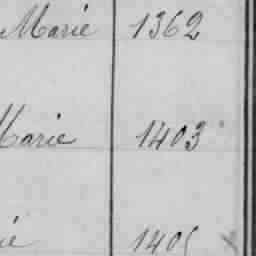 Marie 1362
Marie 1403
ie 1405